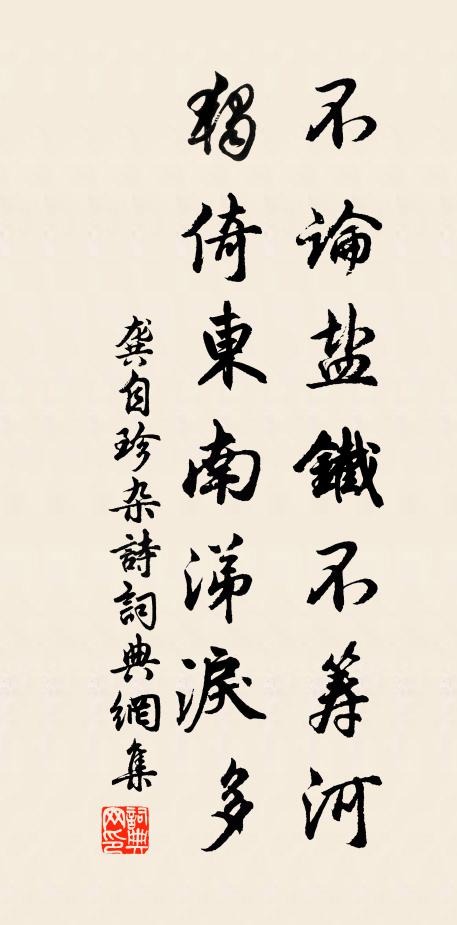 不論盐鐵不筹河
獨倚東南涕淚多
龔自珍杂詩詞典網集
詞典网印